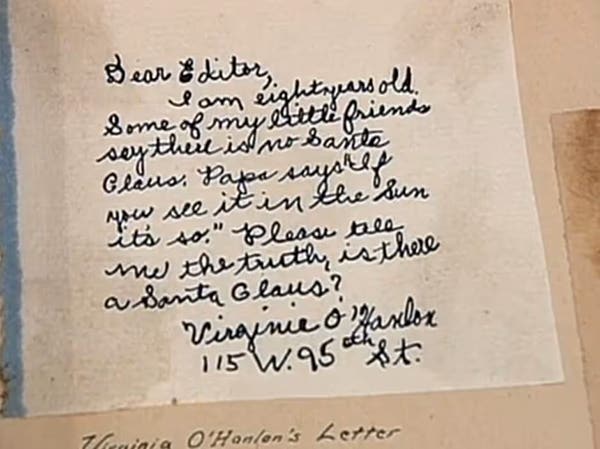 Dear Editor,
I am eight years old.
Some of my little friends
say there is no Santa
Claus. Papa says "If
you see it in the Sun
it's so." Please tell
me the truth, is there
a Santa Claus?
Virginia O'Hanlon
115 W. 95th St.
Virginia O'Hanlon's Letter